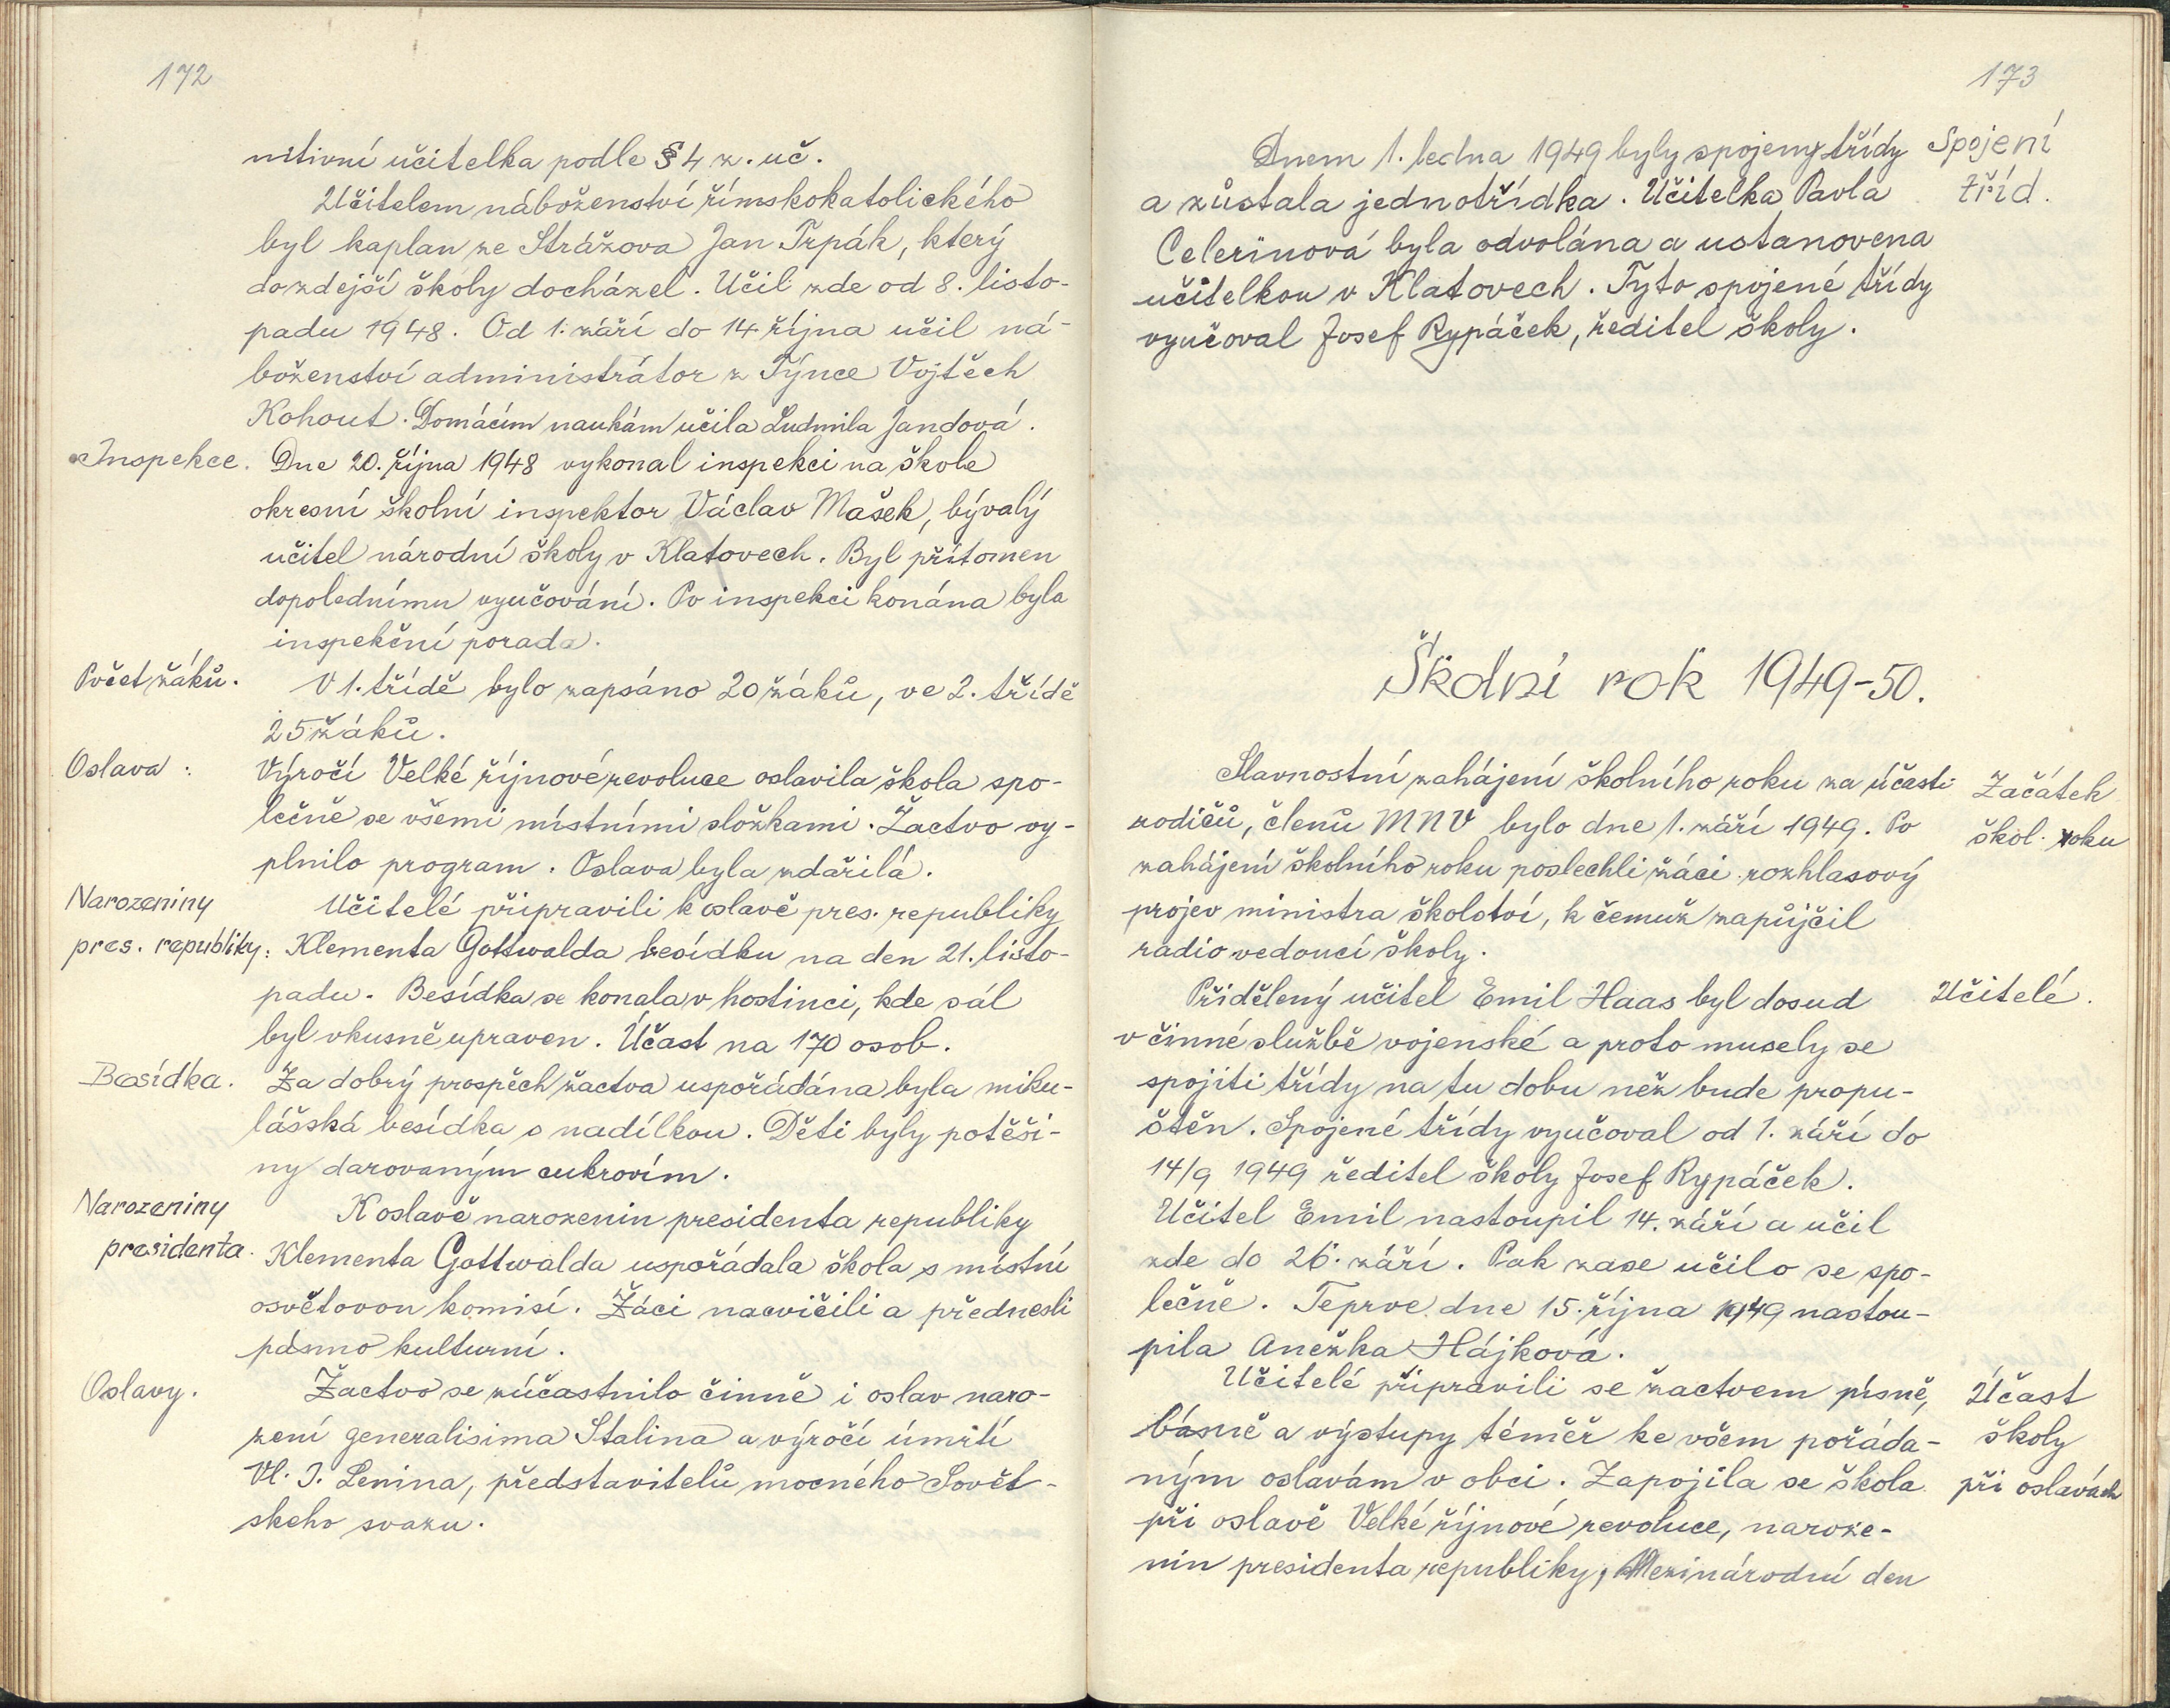 172
nitivní učitelka podle § 4 z. uč.
Učitelem náboženství římskokatolického
byl kaplan ze Strážova Jan Trpák, který
do zdejší školy docházel. Učil zde od 8. listo-
padu 1948. Od 1. září do 14 října učil ná-
boženství administrátor z Týnce Vojtěch
Kohout. Domácím naukám učila Ludmila Jandová.
Inspekce. Dne 20. října 1948 vykonal inspekci na škole
okresní školní inspektor Václav Mašek, bývalý
učitel národní školy v Klatovech. Byl přítomen
dopolednímu vyučování. Po inspekci konána byla
inspekční porada.
Počet žáků. V 1. třídě bylo zapsáno 20 žáků, ve 2. třídě
25 žáků.
Oslava: Výročí Velké říjnové revoluce oslavila škola spo-
lečně se všemi místními složkami. Žactvo vy-
plnilo program. Oslava byla zdařilá.
Narozeniny Učitelé připravili k oslavě pres. republiky
pres. republiky: Klementa Gottwalda besídku na den 21. listo-
padu. Besídka se konala v hostinci, kde sál
byl vkusně upraven. Účast na 170 osob.
Besídka. Za dobrý prospěch žactva uspořádána byla miku-
lášská besídka s nadílkou. Děti byly potěši-
ny darovaným cukrovím.
Narozeniny K oslavě narozenin presidenta republiky
presidenta. Klementa Gottwalda uspořádala škola s místní
osvětovou komisí. Žáci nacvičili a přednesli
pásmo kulturní.
Oslavy. Žactvo se zúčastnilo činně i oslav naro-
zení generalisima Stalina a výročí úmrtí
Vl. I. Lenina, představitelů mocného Sovět-
skeho svazu.
173
Dnem 1. ledna 1949 byly spojeny třídy Spojení
a zůstala jednotřídka. Učitelka Pavla tříd.
Celerinová byla odvolána a ustanovena
učitelkou v Klatovech. Tyto spojené třídy
vyučoval Josef Rypáček, ředitel školy.
Školní rok 1949-50.
Slavnostní zahájení školního roku za účasti Začátek
rodičů, členů MNV bylo dne 1. září 1949. Po škol. roku
zahájení školního roku poslechli žáci rozhlasový
projev ministra školství, k čemuž zapůjčil
radio vedoucí školy.
Přidělený učitel Emil Haas byl dosud Učitelé.
v činné službě vojenské a proto musely se
spojiti třídy na tu dobu než bude propu-
štěn. Spojené třídy vyučoval od 1. září do
14/9 1949 ředitel školy Josef Rypáček.
Učitel Emil nastoupil 14. září a učil
zde do 26. září. Pak zase učilo se spo-
lečně. Teprve dne 15. října 1949 nastou-
pila Anežka Hájková.
Učitelé připravili se žactvem písně, Účast
básně a výstupy téměř ke všem pořáda- školy
ným oslavám v obci. Zapojila se škola při oslavách
při oslavě Velké říjnové revoluce, naroze-
nin presidenta republiky, Mezinárodní den